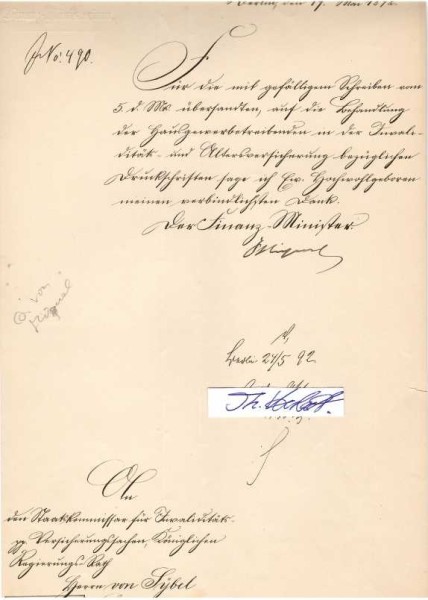 Berlin, den 17. Mai 1892.
J. No. 490.
Für die mit gefälligem Schreiben vom
5. d. Mts übersandten, auf die Behandlung
der Hausgewerbetreibenden in der Invali-
ditäts- und Altersversicherung bezüglichen
Druckschriften sage ich Ew. Hochwohlgeboren
meinen verbindlichsten Dank.
Der Finanz-Minister
Miquel
von
Miquel
Berlin 24/5 92
An
den Staatskommissar für Invaliditäts-
pp Versicherungssachen, Königlichen
Regierungs-Rath
Herrn von Sybel